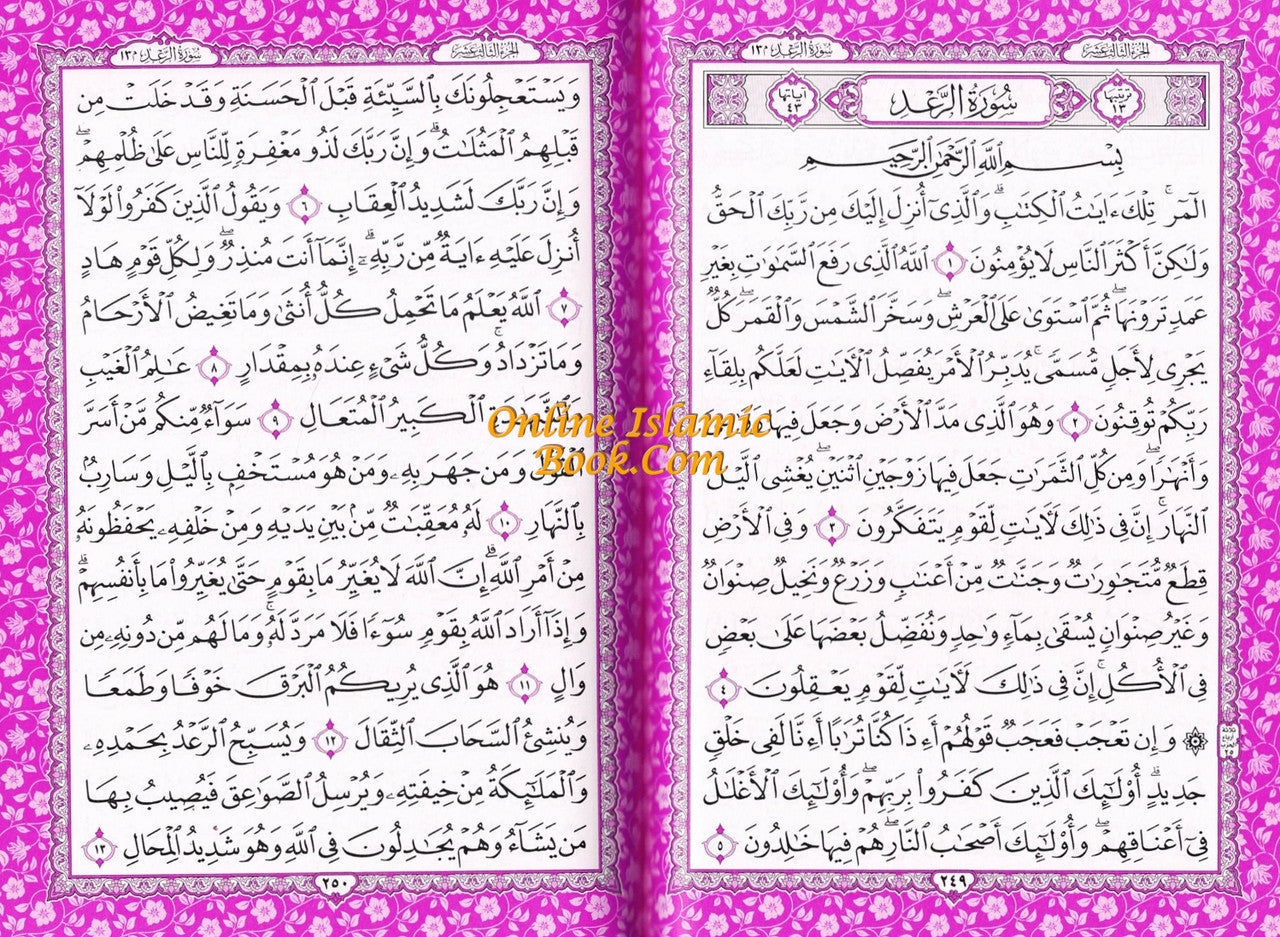 الجزء الثالث عشر
سورة الرعد ١٣
ترتيبها ١٣
سُورَةُ الرَّعْدِ
آياتها ٤٣
بِسْمِ اللَّهِ الرَّحْمَٰنِ الرَّحِيمِ
الٓمٓرۚ تِلۡكَ ءَايَٰتُ ٱلۡكِتَٰبِۗ وَٱلَّذِيٓ أُنزِلَ إِلَيۡكَ مِن رَّبِّكَ ٱلۡحَقُّ
وَلَٰكِنَّ أَكۡثَرَ ٱلنَّاسِ لَا يُؤۡمِنُونَ ١ ٱللَّهُ ٱلَّذِي رَفَعَ ٱلسَّمَٰوَٰتِ بِغَيۡرِ
عَمَدٖ تَرَوۡنَهَاۖ ثُمَّ ٱسۡتَوَىٰ عَلَى ٱلۡعَرۡشِۖ وَسَخَّرَ ٱلشَّمۡسَ وَٱلۡقَمَرَۖ كُلّٞ
يَجۡرِي لِأَجَلٖ مُّسَمّٗىۚ يُدَبِّرُ ٱلۡأَمۡرَ يُفَصِّلُ ٱلۡأٓيَٰتِ لَعَلَّكُم بِلِقَآءِ
رَبِّكُمۡ تُوقِنُونَ ٢ وَهُوَ ٱلَّذِي مَدَّ ٱلۡأَرۡضَ وَجَعَلَ فِيهَا
وَأَنۡهَٰرٗاۖ وَمِن كُلِّ ٱلثَّمَرَٰتِ جَعَلَ فِيهَا زَوۡجَيۡنِ ٱثۡنَيۡنِۖ يُغۡشِي ٱلَّيۡلَ
ٱلنَّهَارَۚ إِنَّ فِي ذَٰلِكَ لَأٓيَٰتٖ لِّقَوۡمٖ يَتَفَكَّرُونَ ٣ وَفِي ٱلۡأَرۡضِ
قِطَعٞ مُّتَجَٰوِرَٰتٞ وَجَنَّٰتٞ مِّنۡ أَعۡنَٰبٖ وَزَرۡعٞ وَنَخِيلٞ صِنۡوَانٞ
وَغَيۡرُ صِنۡوَانٖ يُسۡقَىٰ بِمَآءٖ وَٰحِدٖ وَنُفَضِّلُ بَعۡضَهَا عَلَىٰ بَعۡضٖ
فِي ٱلۡأُكُلِۚ إِنَّ فِي ذَٰلِكَ لَأٓيَٰتٖ لِّقَوۡمٖ يَعۡقِلُونَ ٤
۞ وَإِن تَعۡجَبۡ فَعَجَبٞ قَوۡلُهُمۡ أَءِذَا كُنَّا تُرَٰبًا أَءِنَّا لَفِي خَلۡقٖ
جَدِيدٍۗ أُوْلَٰٓئِكَ ٱلَّذِينَ كَفَرُواْ بِرَبِّهِمۡۖ وَأُوْلَٰٓئِكَ ٱلۡأَغۡلَٰلُ
فِيٓ أَعۡنَاقِهِمۡۖ وَأُوْلَٰٓئِكَ أَصۡحَٰبُ ٱلنَّارِۖ هُمۡ فِيهَا خَٰلِدُونَ ٥
٢٤٩
الجزء الثالث عشر
سورة الرعد ١٣
وَيَسۡتَعۡجِلُونَكَ بِٱلسَّيِّئَةِ قَبۡلَ ٱلۡحَسَنَةِ وَقَدۡ خَلَتۡ مِن
قَبۡلِهِمُ ٱلۡمَثُلَٰتُۗ وَإِنَّ رَبَّكَ لَذُو مَغۡفِرَةٖ لِّلنَّاسِ عَلَىٰ ظُلۡمِهِمۡۖ
وَإِنَّ رَبَّكَ لَشَدِيدُ ٱلۡعِقَابِ ٦ وَيَقُولُ ٱلَّذِينَ كَفَرُواْ لَوۡلَآ
أُنزِلَ عَلَيۡهِ ءَايَةٞ مِّن رَّبِّهِۦٓۗ إِنَّمَآ أَنتَ مُنذِرٞۖ وَلِكُلِّ قَوۡمٍ هَادٍ
٧ ٱللَّهُ يَعۡلَمُ مَا تَحۡمِلُ كُلُّ أُنثَىٰ وَمَا تَغِيضُ ٱلۡأَرۡحَامُ
وَمَا تَزۡدَادُۚ وَكُلُّ شَيۡءٍ عِندَهُۥ بِمِقۡدَارٍ ٨ عَٰلِمُ ٱلۡغَيۡبِ
ٱلۡكَبِيرُ ٱلۡمُتَعَالِ ٩ سَوَآءٞ مِّنكُم مَّنۡ أَسَرَّ
ٱلۡقَوۡلَ وَمَن جَهَرَ بِهِۦ وَمَنۡ هُوَ مُسۡتَخۡفِۭ بِٱلَّيۡلِ وَسَارِبُۢ
بِٱلنَّهَارِ ١٠ لَهُۥ مُعَقِّبَٰتٞ مِّنۢ بَيۡنِ يَدَيۡهِ وَمِنۡ خَلۡفِهِۦ يَحۡفَظُونَهُۥ
مِنۡ أَمۡرِ ٱللَّهِۗ إِنَّ ٱللَّهَ لَا يُغَيِّرُ مَا بِقَوۡمٍ حَتَّىٰ يُغَيِّرُواْ مَا بِأَنفُسِهِمۡۗ
وَإِذَآ أَرَادَ ٱللَّهُ بِقَوۡمٖ سُوٓءٗا فَلَا مَرَدَّ لَهُۥۚ وَمَا لَهُم مِّن دُونِهِۦ مِن
وَالٍ ١١ هُوَ ٱلَّذِي يُرِيكُمُ ٱلۡبَرۡقَ خَوۡفٗا وَطَمَعٗا
وَيُنشِئُ ٱلسَّحَابَ ٱلثِّقَالَ ١٢ وَيُسَبِّحُ ٱلرَّعۡدُ بِحَمۡدِهِۦ
وَٱلۡمَلَٰٓئِكَةُ مِنۡ خِيفَتِهِۦ وَيُرۡسِلُ ٱلصَّوَٰعِقَ فَيُصِيبُ بِهَا
مَن يَشَآءُ وَهُمۡ يُجَٰدِلُونَ فِي ٱللَّهِ وَهُوَ شَدِيدُ ٱلۡمِحَالِ ١٣
٢٥٠
Online Islamic
Book.Com